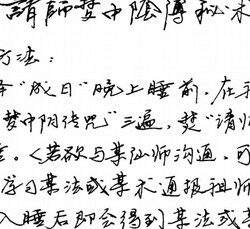 請師梦中陰傳秘术
方法：
"成日"晚上睡前，在
梦中阴传咒"三遍，焚"请师
。〈若欲与某仙师沟通，可
学习某法或某术通报祖师
入睡后即会得到某法或某